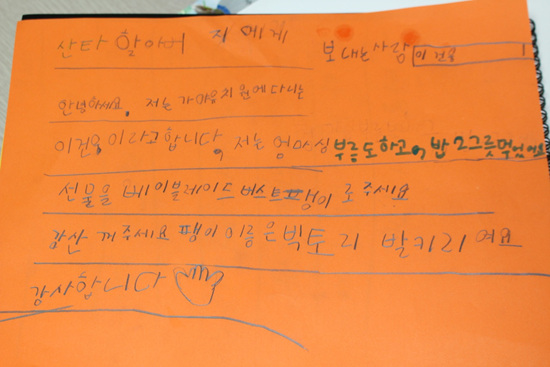 산타 할아버 지 에게
보내는사람 이건웅
안녕하세요. 저는 가야유치원에다니는
이건웅이라고합니다. 저는 엄마심부름도하고, 밥2그릇먹었어요
선물을 베이블레이드 버스트팽이 로주세요
강산 꺼주세요 팽이이름은빅토리 발키리여요
감사합니다